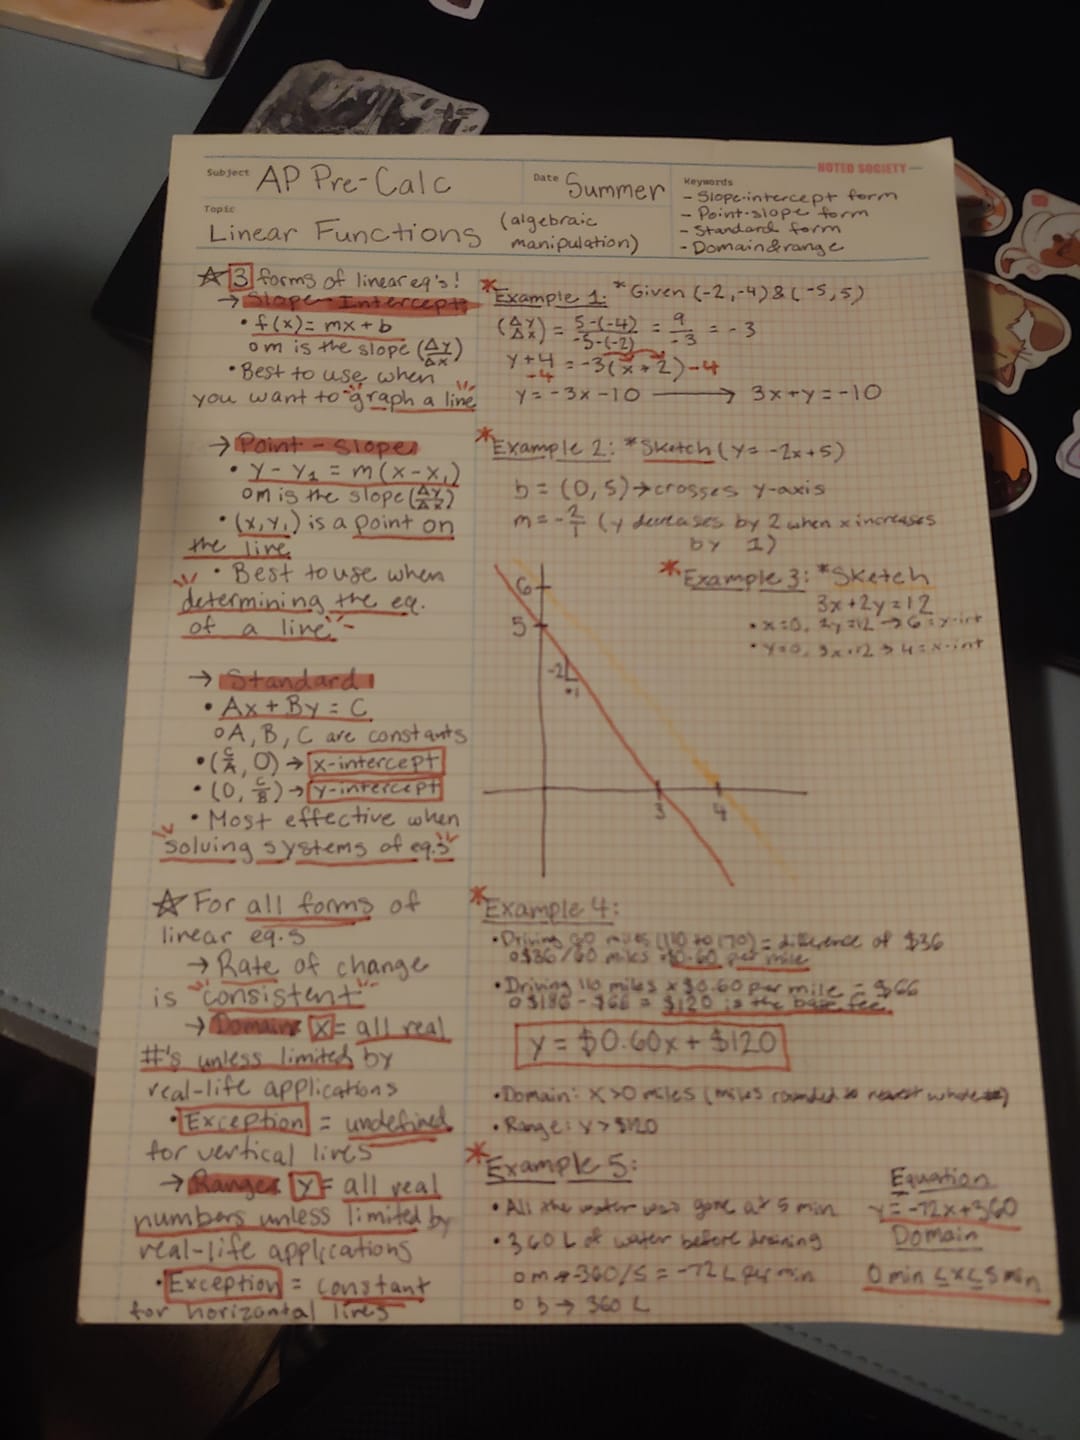 NOTED SOCIETY
Subject AP Pre-Calc
Date Summer
Keywords
- Slope-intercept form
- Point-slope form
- Standard form
- Domain&range
Topic
Linear Functions (algebraic
manipulation)
☆ 3 forms of linear eq's!
→ Slope-Intercept
• f(x) = mx + b
o m is the slope (Δy/Δx)
• Best to use when
you want to graph a line
→ Point-Slope
• y - y₁ = m(x - x₁)
o m is the slope (Δy/Δx)
• (x, y₁) is a point on
the line
• Best to use when
determining the eq.
of a line
→ Standard
• Ax + By = C
o A, B, C are constants
• (C/A, 0) → x-intercept
• (0, C/B) → y-intercept
• Most effective when
solving systems of eq.s
☆ For all forms of
linear eq.s
→ Rate of change
is "consistent"
→ Domain: x = all real
#'s unless limited by
real-life applications
• Exception = undefined
for vertical lines
→ Range: y = all real
numbers unless limited by
real-life applications
• Exception = constant
for horizontal lines
* Example 1: * Given (-2, -4) & (-5, 5)
(Δy/Δx) = 5-(-4)/-5-(-2) = 9/-3 = -3
y + 4 = -3(x + 2) - 4
-4
y = -3x - 10 → 3x + y = -10
* Example 2: * Sketch (y = -2x + 5)
b = (0, 5) → crosses y-axis
m = -2/1 (y decreases by 2 when x increases
by 1)
* Example 3: * Sketch
3x + 2y = 12
• x = 0, 2y = 12 → 6 = y-int
• y = 0, 3x = 12 → 4 = x-int
6
5
-2
1
3
4
* Example 4:
• Driving 60 miles (110 to 170) = difference of $36
o $36/60 miles = $0.60 per mile
• Driving 110 miles x $0.60 per mile = $66
o $186 - $66 = $120 is the base fee
y = $0.60x + $120
• Domain: x > 0 miles (miles rounded to nearest whole #)
• Range: y > $120
* Example 5:
• All the water was gone at 5 min
• 360 L of water before draining
o m → 360/5 = -72 L per min
o b → 360 L
Equation
y = -72x + 360
Domain
0 min ≤ x ≤ 5 min